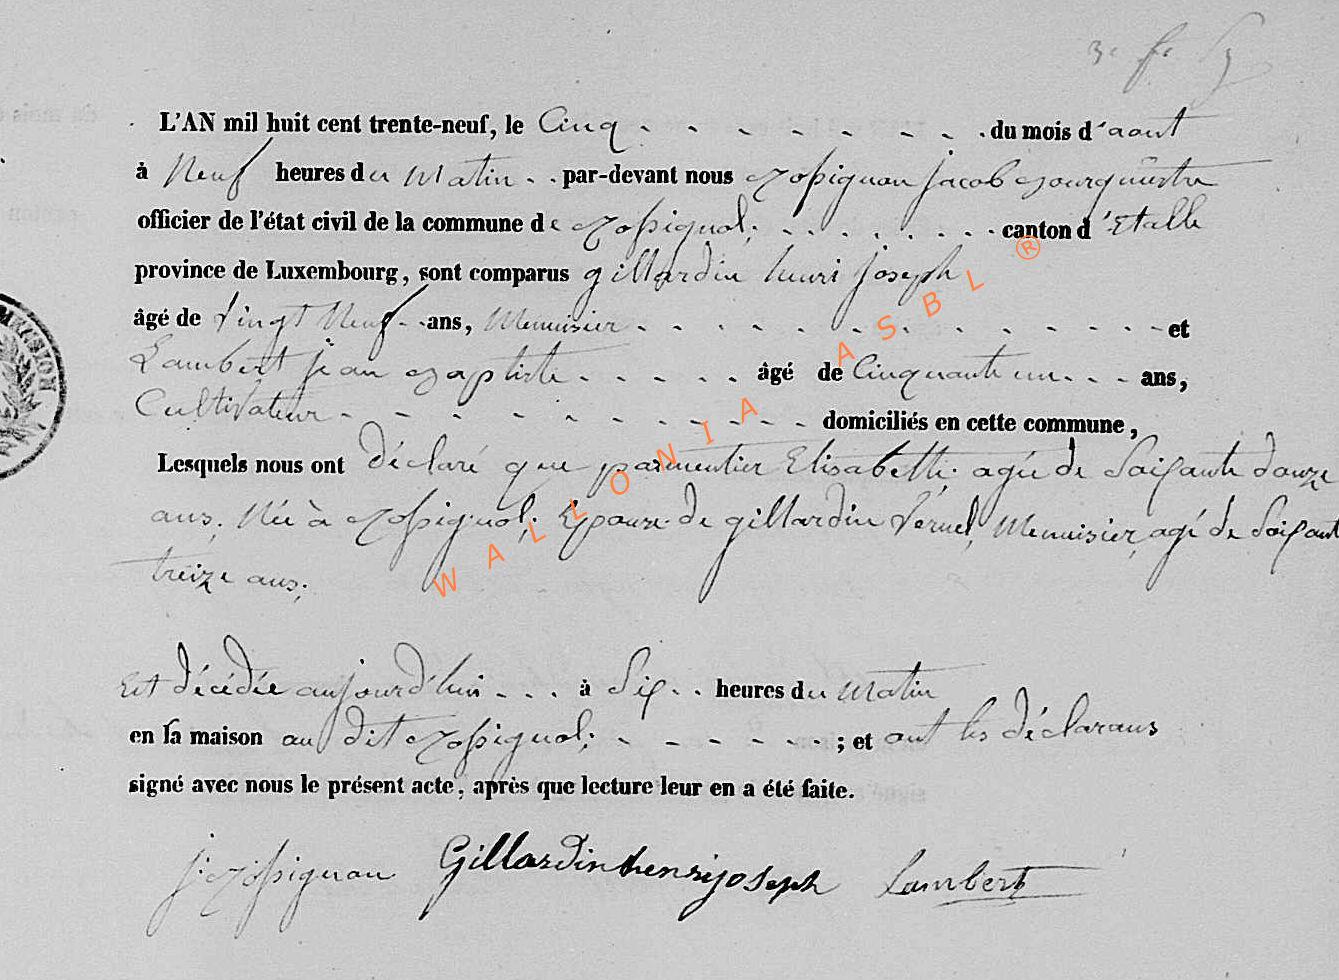 3e f. 
L'AN mil huit cent trente-neuf, le Cinq du mois d'aout
à Neuf heures du Matin par-devant nous Rossignon jacob Bourguèstre
officier de l'état civil de la commune de Rossignol; canton d'Etalle
province de Luxembourg, sont comparus gillardin henri joseph
âgé de Vingt Neuf ans, Menuisier et
Lambert jean Baptiste âgé de Cinquante un ans,
Cultivateur domiciliés en cette commune,
Lesquels nous ont déclaré que parmentier Elisabette; agée de Soissante douze
ans; Née à Rossignol; Epouze de gillardin Vernel, Menuisier, agé de Soissante
treize ans;
Est décédée aujourd'hui à Six heures du Matin
en sa maison au dit Rossignol; ; et ont les déclarans
signé avec nous le présent acte, après que lecture leur en a été faite.
j: Rossignon Gillardin henri joseph Lambert
WALLONIA ASBL ®